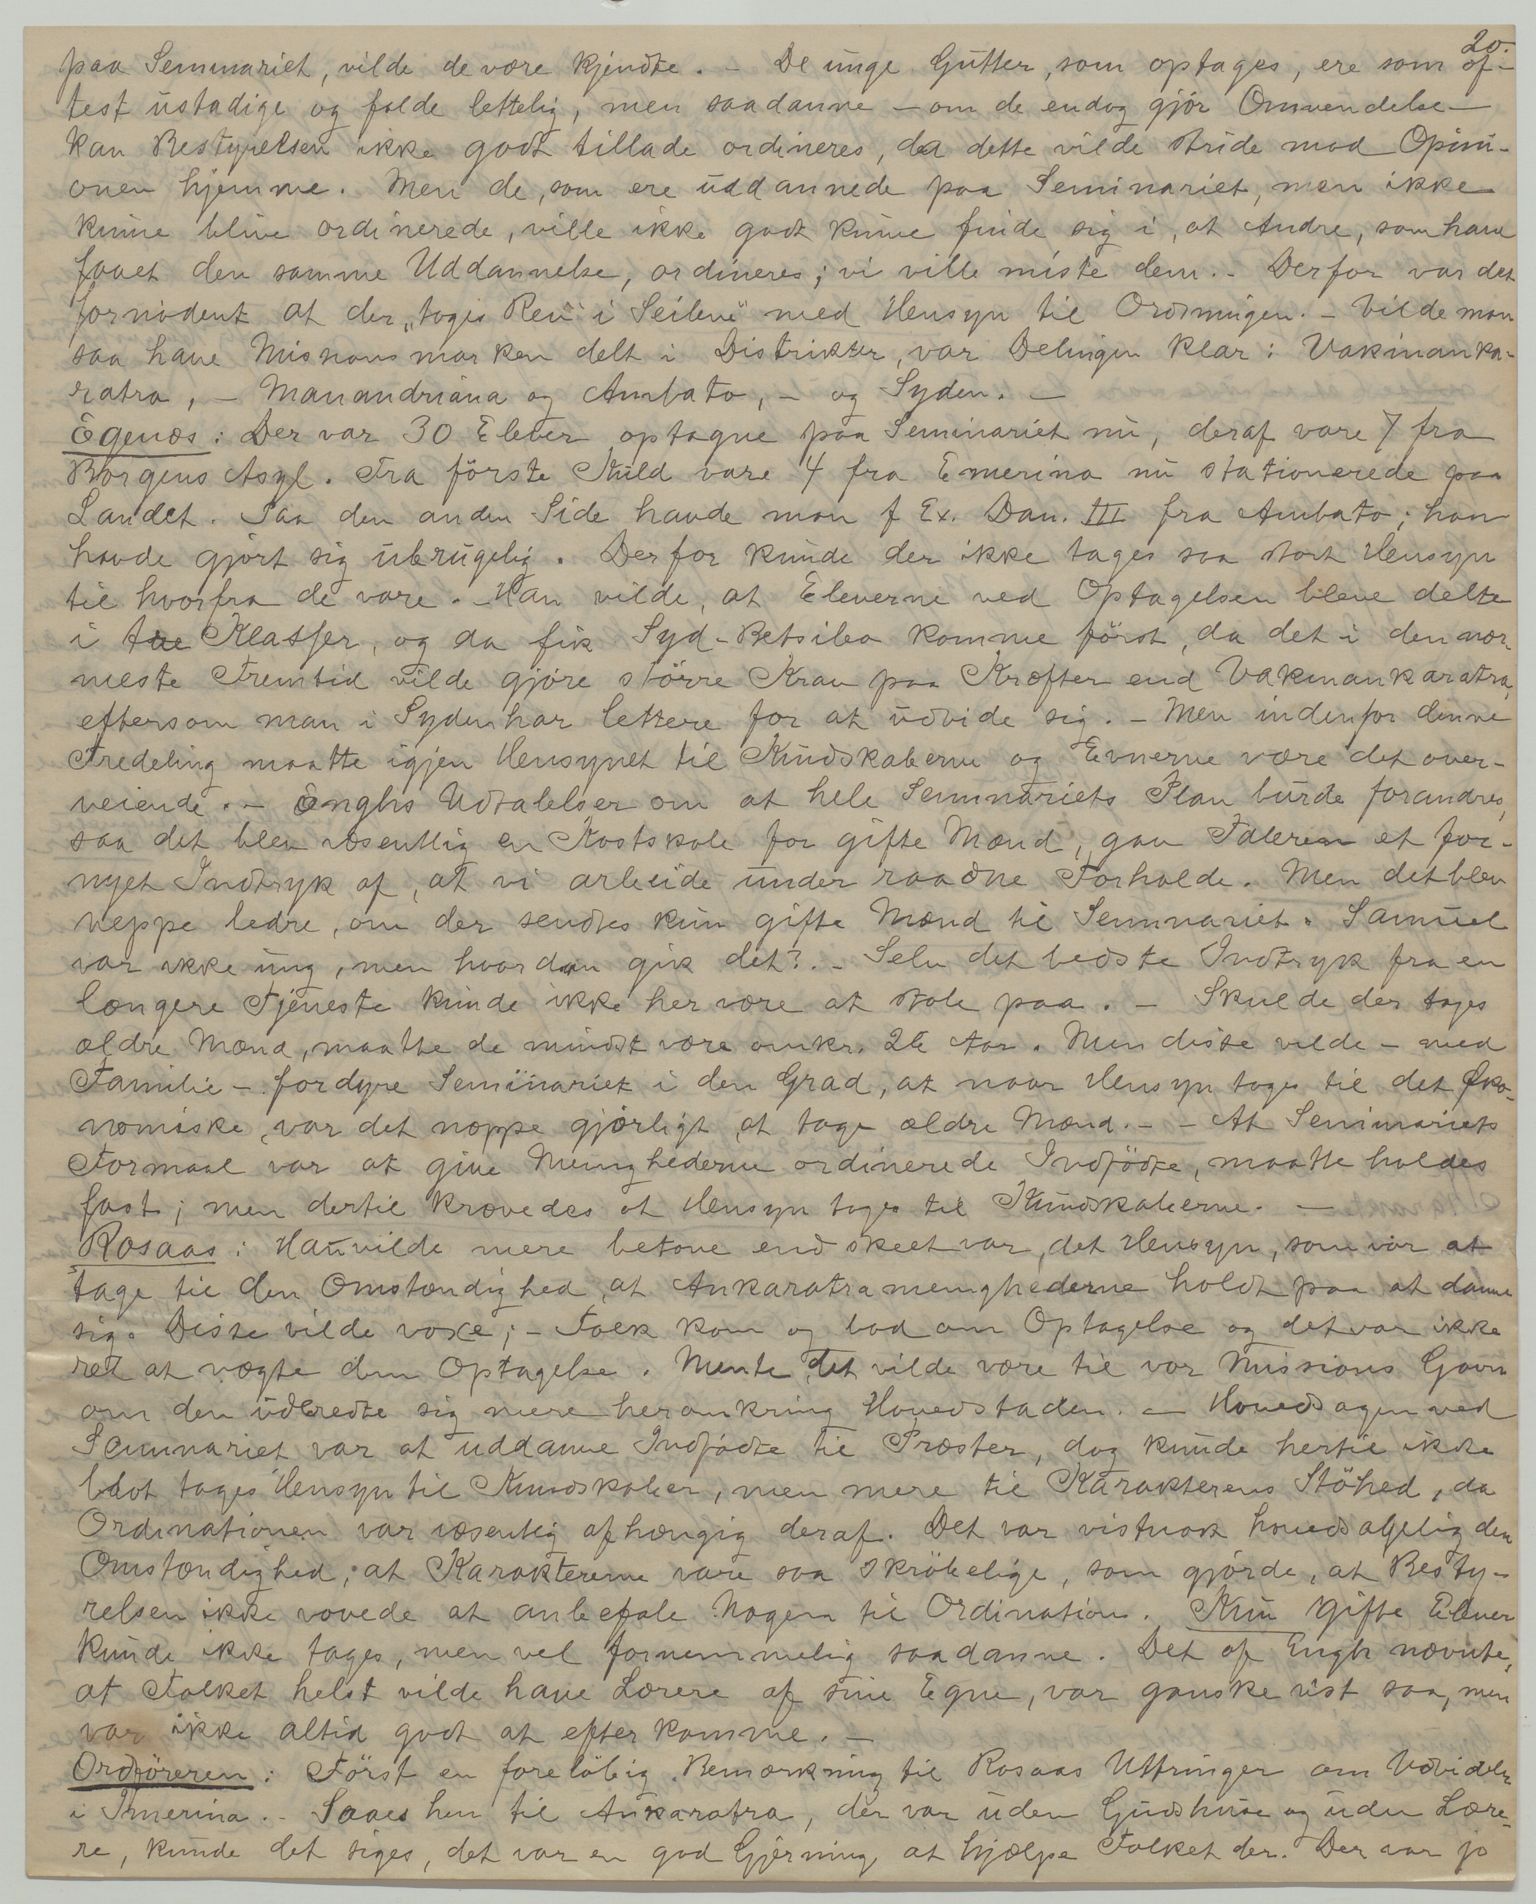 20.
paa Seminariet, vilde de være kjendte. – De unge Gutter, som optages, ere som of-
test ustadige og falde lettelig, men saadanne – om de endog gjør Omvendelse –
kan Bestyrelsen ikke godt tillade ordineres, da dette vilde stride mod Opini-
onen hjemme. Men de, som ere uddannede paa Seminariet, men ikke
kunne blive ordinerede, ville ikke godt kunne finde sig i, at Andre, som have
faaet den samme Uddannelse, ordineres; vi ville miste dem. – Derfor var det
fornødent at der "toges Rev i Seilene" med Hensyn til Ordningen. – Vilde man
saa have Missionsmarken delt i Distrikter, var Delingen klar: Vakinanka-
ratra, – Manandriana og Ambato, – og Syden. –
Egenæs: Der var 30 Elever optagne paa Seminariet nu, deraf vare 7 fra
Borgens Asyl. Fra første Kuld vare 4 fra Emerina nu stationerede paa
Landet. Paa den anden Side havde man f Ex. Dan. III fra Ambato; han
havde gjørt sig ubrugelig. Derfor kunde der ikke tages saa stort Hensyn
til hvorfra de vare. – Han vilde, at Eleverne ved Optagelsen bleve delte
i tre Klasser, og da fik Syd-Betsileo komme först, da det i den nær-
meste Fremtid vilde gjøre större Krav paa Kræfter end Vakinankaratra,
eftersom man i Syden har lettere for at udvide sig. – Men indenfor denne
Tredeling maatte igjen Hensynet til Kundskaberne og Evnerne være det over-
veiende. – Enghs Udtalelser om at hele Seminariets Plan burde forandres,
saa det blev væsentlig en Kostskole for gifte Mænd, gav Taleren et for-
nyet Indtryk af, at vi arbeide under raadne Forholde. Men det blev
neppe bedre, om der sendtes kun gifte Mænd til Seminariet. Samuel
var ikke ung, men hvordan gik det? – Selv det bedste Indtryk fra en
længere Tjeneste kunde ikke her være at stole paa. – Skulde der tages
ældre Mænd, maatte de mindst være omkr. 26 Aar. Men disse vilde – med
Familie – fordyre Seminariet i den Grad, at naar Hensyn tages til det Øko-
nomiske, var det næppe gjørligt at tage ældre Mænd. – – At Seminariets
Formaal var at give Menighederne ordinerede Indfödte, maatte holdes
fast; men dertil krævedes at Hensyn toges til Kundskaberne. –
Rosaas: Han vilde mere betone end skeet var, det Hensyn, som var at
tage til den Omstændighed, at Ankaratramenighederne holdt paa at danne
sig. Disse vilde voxe; – Folk kom og bad om Optagelse og det var ikke
ret at nægte dem Optagelse. Mente det vilde være til vor Missions Gavn
om den udbredte sig mere heromkring Hovedstaden. – Hovedsagen ved
Seminariet var at uddanne Indfödte til Præster, dog kunde hertil ikke
blot tages Hensyn til Kundskaber, men mere til Karakterens Støhed, da
Ordinationen var væsentlig afhængig deraf. Det var vistnok hovedsagelig den
Omstændighed, at Karaktererne vare saa skröbelige, som gjörde, at Besty-
relsen ikke vovede at anbefale Nogen til Ordination. Kun gifte Elever
kunde ikke tages, men vel fornemmelig saadanne. Det af Engh nævnte,
at Folket helst vilde have Lærere af sine Egne, var ganske vist saa, men
var ikke altid godt at efterkomme. –
Ordföreren: Först en forelöbig Bemærkning til Rosaas Uttringer om Udvidelse
i Imerina. – Saaes hen til Ankaratra, der var uden Gudshuse og uden Lære-
re, kunde det siges, det var en god Gjerning at hjælpe Folket der. Der var jo